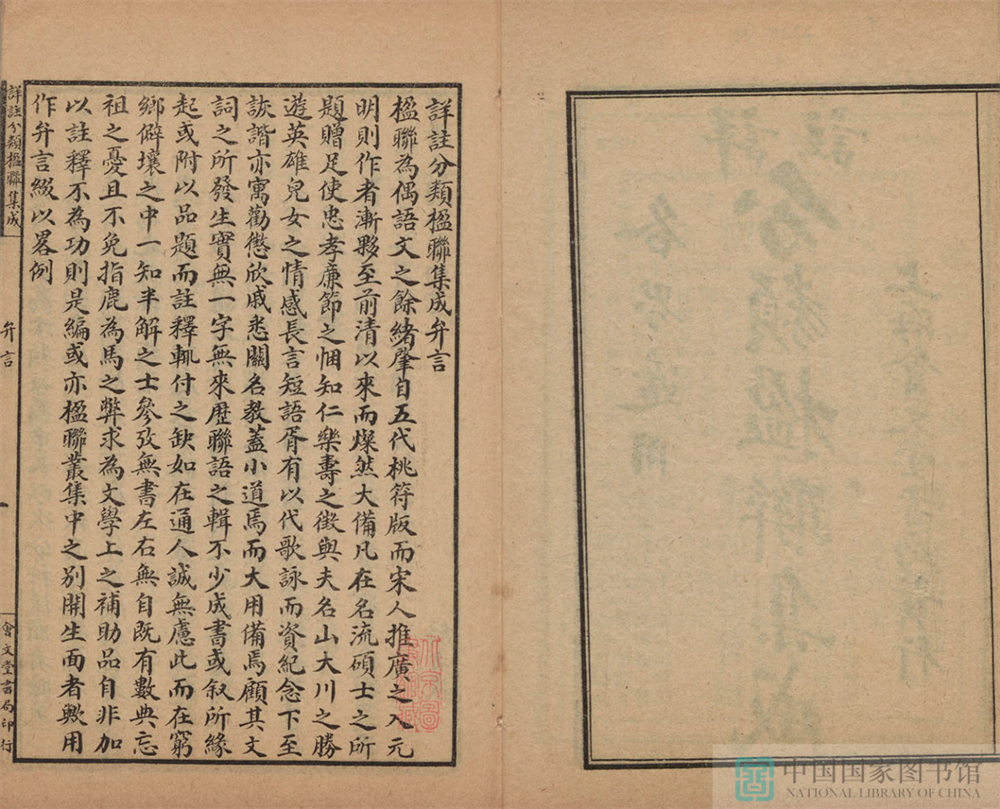 詳註分類楹聯集成弁言
楹聯為偶語文之餘緒肇自五代桃符版而宋人推廣之入元
明則作者漸夥至前清以來而燦然大備凡在名流碩士之所
題贈足使忠孝廉節之悃知仁樂壽之徵與夫名山大川之勝
遊英雄兒女之情感長言短語胥有以代歌詠而資紀念下至
詼諧亦寓勸懲欣戚悉關名教蓋小道焉而大用備焉顧其文
詞之所發生實無一字無來歷聯語之輯不少成書或叙所緣
起或附以品題而註釋輒付之缺如在通人誠無慮此而在窮
鄉僻壤之中一知半解之士參攷無書左右無自既有數典忘
祖之憂且不免指鹿為馬之弊求為文學上之補助品自非加
以註釋不為功則是編或亦楹聯叢集中之別開生面者歟用
作弁言綴以畧例
詳註分類楹聯集成
弁言
一
會文堂書局印行
中国国家图书馆
NATIONAL LIBRARY OF CHINA